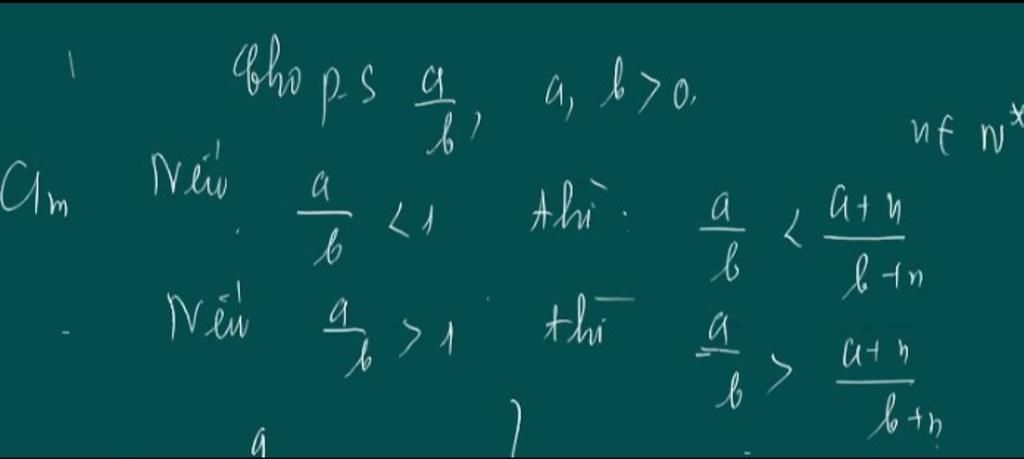 Cho p.s a/b, a, b > 0. n ∈ N*
Cm Nếu a/b < 1 thì: a/b < (a+n)/(b+n)
Nếu a/b > 1 thì a/b > (a+n)/(b+n)
a